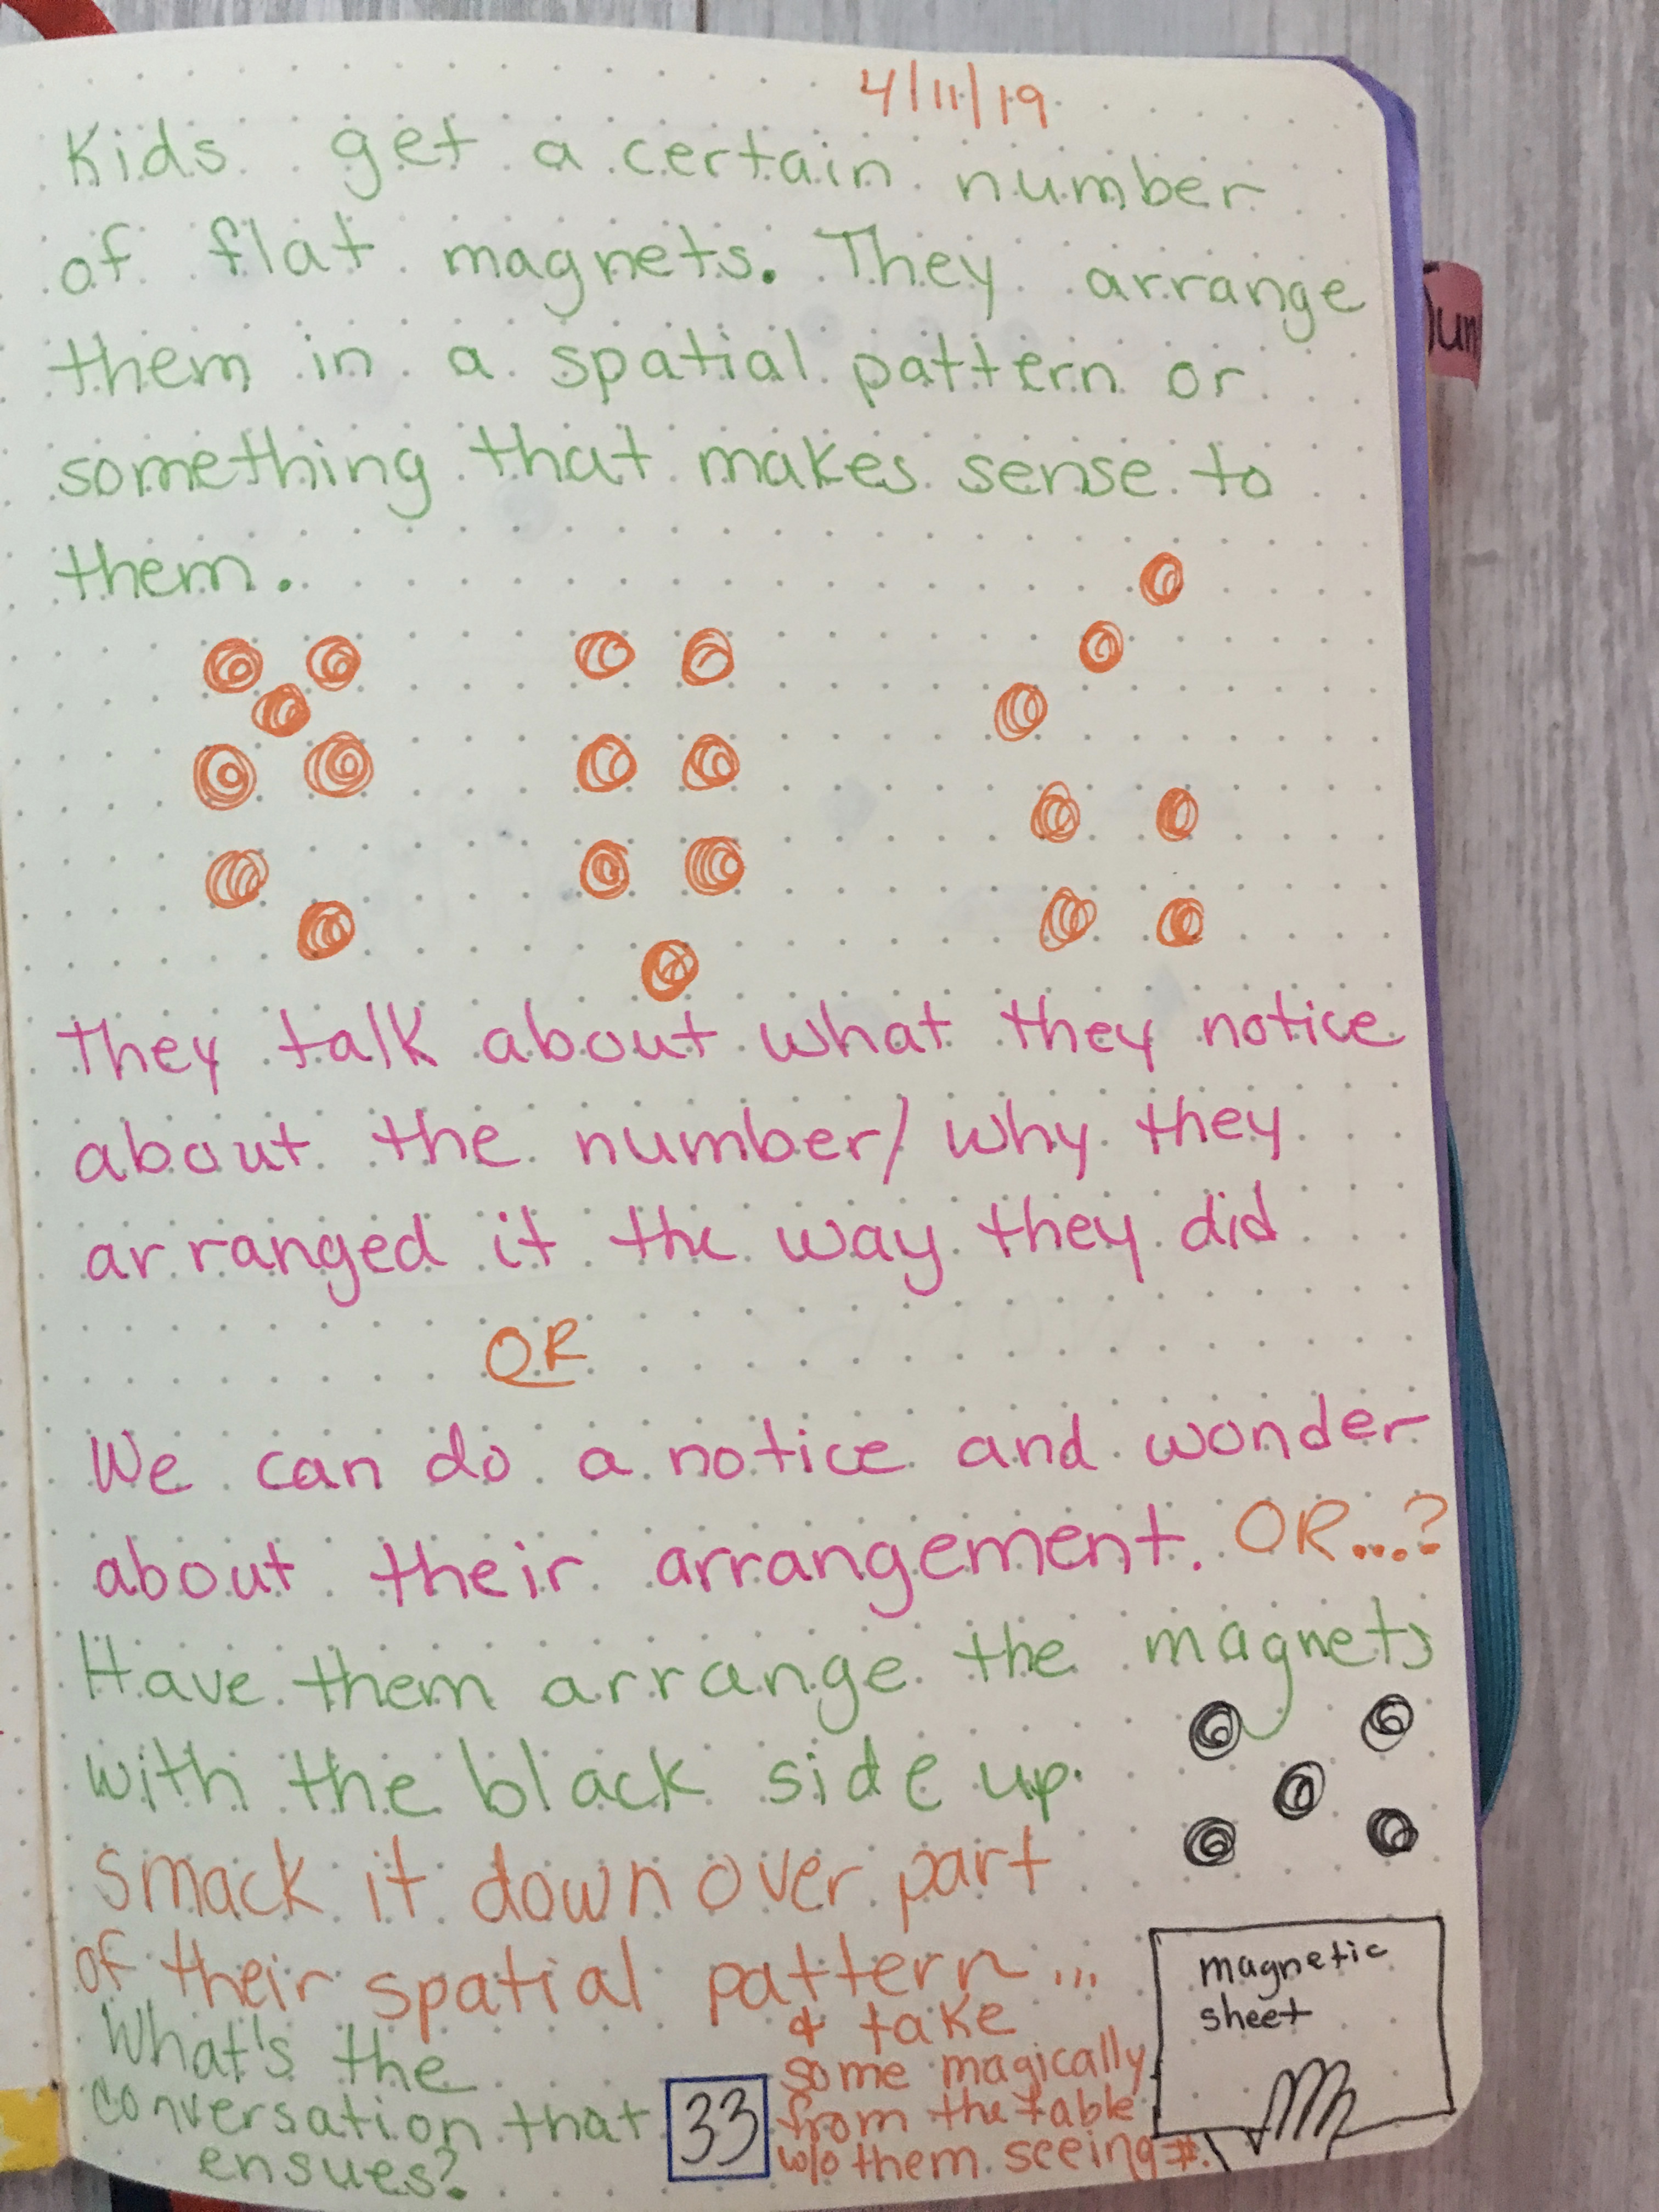 4/11/19
Kids get a certain number
of flat magnets. They arrange
them in a spatial pattern or
something that makes sense to
them.
They talk about what they notice
about the number/ why they
arranged it the way they did
OR
We can do a notice and wonder
about their arrangement. OR...?
Have them arrange the magnets
with the black side up.
Smack it down over part
of their spatial pattern...
& take
some magically
from the table
w/o them seeing #.
magnetic
sheet
What's the
conversation that
ensues?
33